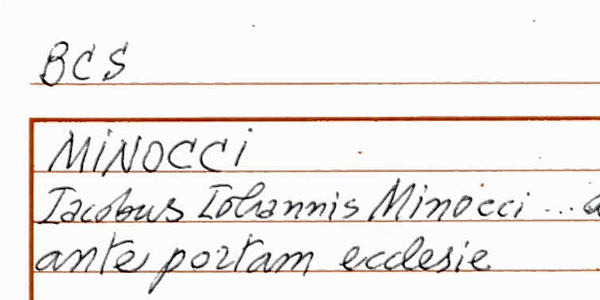 BCS
MINOCCI
Iacobus Iohannis Minocci ...
ante portam ecclesie